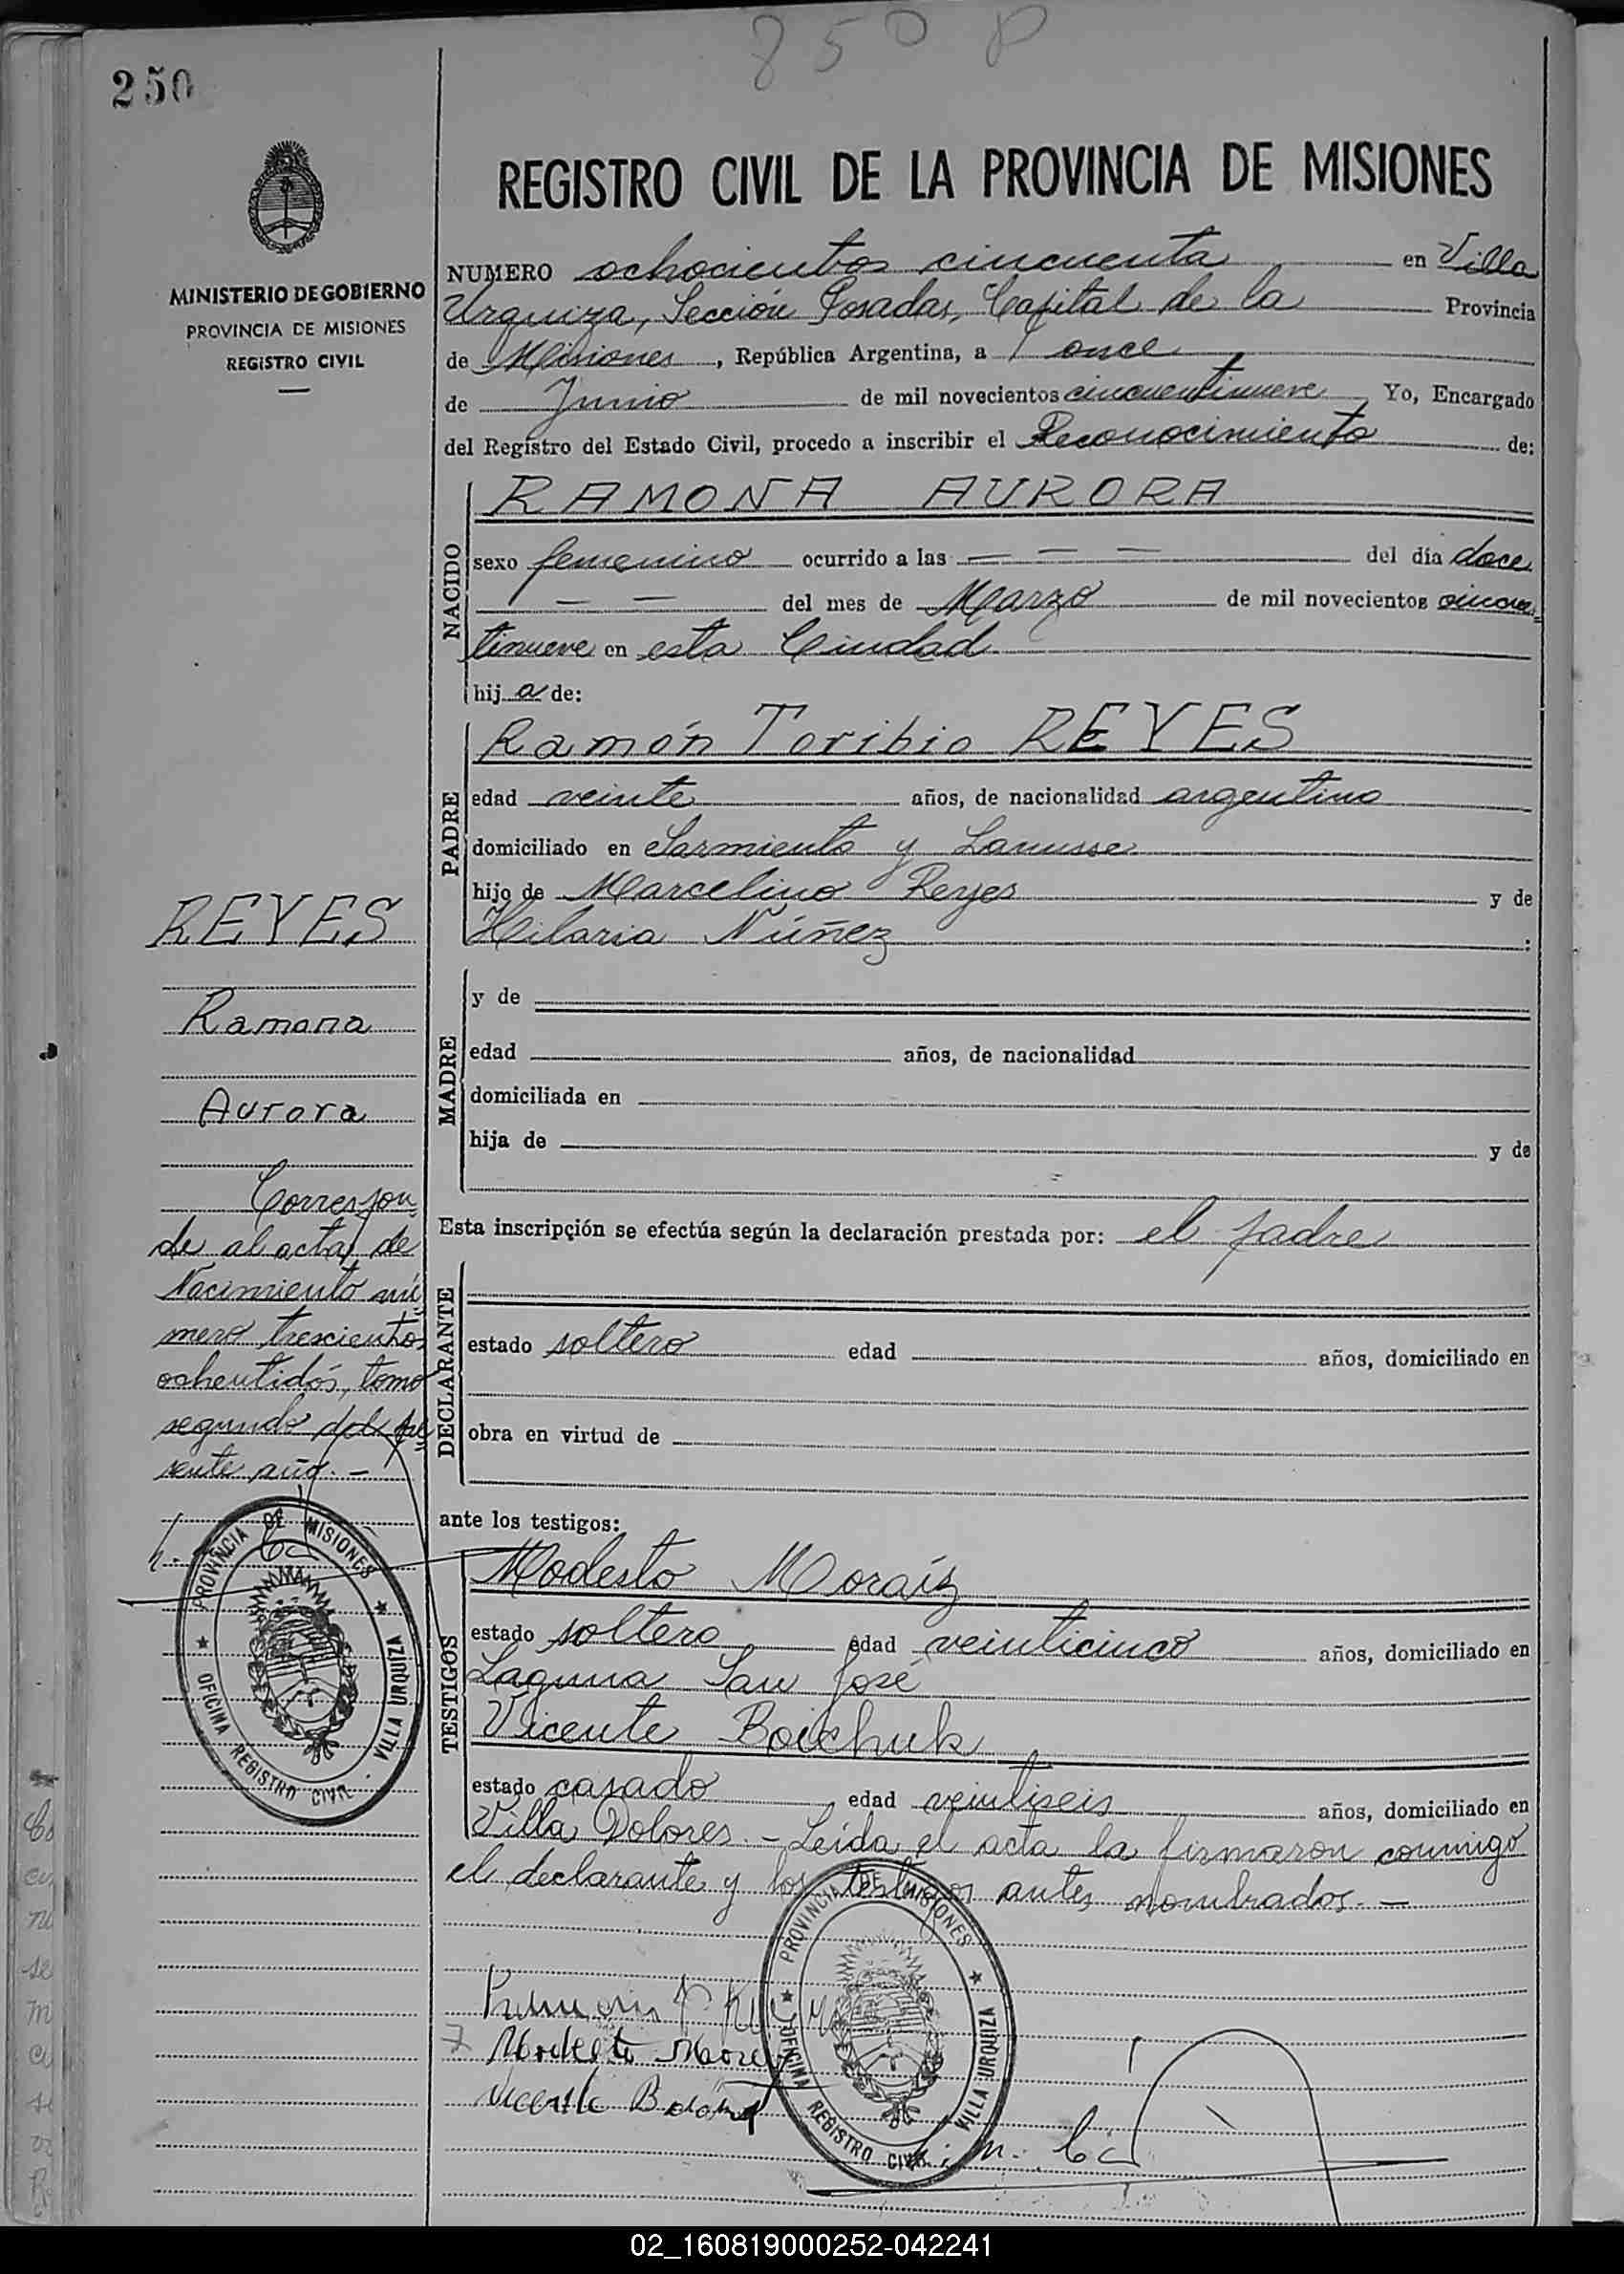 850 P
250
REGISTRO CIVIL DE LA PROVINCIA DE MISIONES
MINISTERIO DE GOBIERNO
PROVINCIA DE MISIONES
REGISTRO CIVIL
NUMERO ochocientos cincuenta en Villa
Urquiza, Sección Posadas, Capital de la Provincia
de Misiones, República Argentina, a once
de Junio de mil novecientos cincuentinueve Yo, Encargado
del Registro del Estado Civil, procedo a inscribir el Reconocimiento de:
NACIDO
RAMONA AURORA
sexo femenino ocurrido a las — — — del día doce
— — del mes de Marzo de mil novecientos cincuen=
tinueve en esta Ciudad
hija de:
PADRE
Ramón Toribio REYES
edad veinte años, de nacionalidad argentino
domiciliado en Sarmiento y Lanusse
hijo de Marcelino Reyes y de
Hilaria Núñez :
MADRE
y de
edad años, de nacionalidad
domiciliada en
hija de y de
Esta inscripción se efectúa según la declaración prestada por: el padre
DECLARANTE
estado soltero edad años, domiciliado en
obra en virtud de
ante los testigos:
TESTIGOS
Modesto Moraíz
estado soltero edad veinticinco años, domiciliado en
Laguna San José
Vicente Boichuk
estado casado edad veintiseis años, domiciliado en
Villa Dolores.- Leída el acta la firmaron conmigo
el declarante y los testigos antes nombrados.-
REYES
Ramona
Aurora
Correspon=
de al acta de
Nacimiento nú=
mero trescientos
ochentidós, tomo
segundo del pre=
sente año.-
PROVINCIA DE MISIONES
OFICINA REGISTRO CIVIL
VILLA URQUIZA
Modesto
Vicente
PROVINCIA DE MISIONES
OFICINA REGISTRO CIVIL
VILLA URQUIZA
02_160819000252-042241